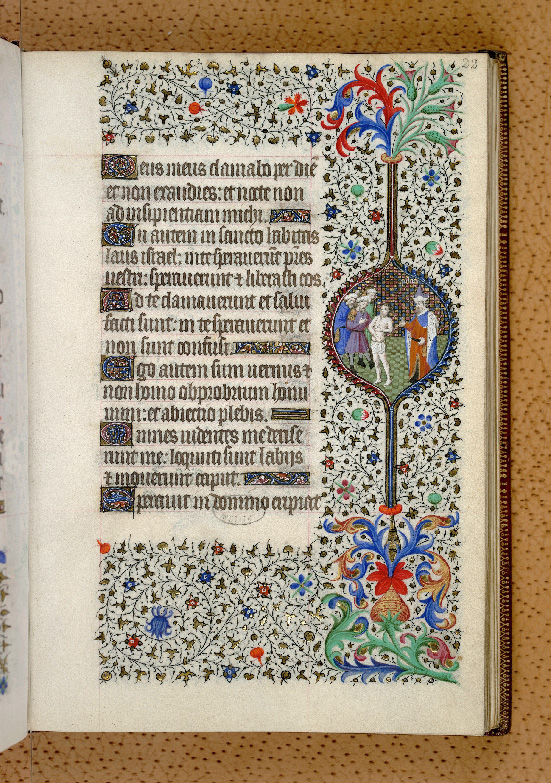 22
Deus meus clamabo per die
et non exaudies: et nocte non
ad insipientiam michi.
Tu autem in sancto habitas
laus israel: in te speraverūt pres
nostri: speraverunt ⁊ liberasti eos.
Ad te clamaverunt et salvi
facti sunt: in te speraverunt et
non sunt confusi.
Ego autem sum vermis ⁊
non homo obprobrium homi
num: et abiectio plebis.
Omnes videntes me derise
runt me: locuti sunt labijs
⁊ moverunt caput.
Speravit in domino eripiat